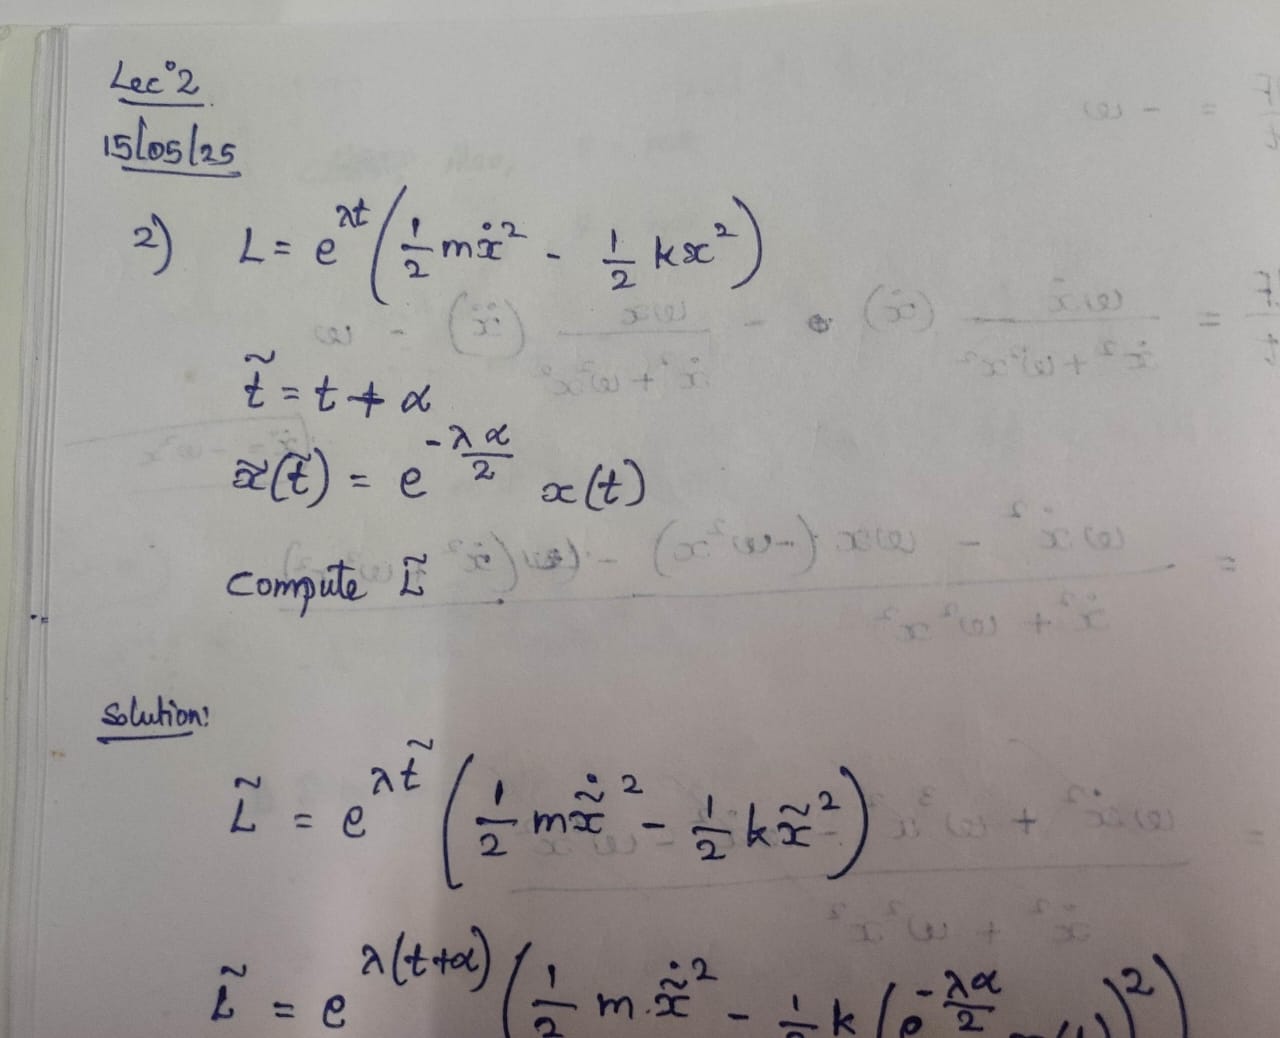 Lec°2
15/05/25
2) L = e^{λt} (1/2 mẋ² - 1/2 kx²)
t̃ = t + α
x̃(t̃) = e^{-λα/2} x(t)
Compute L̃
Solution:
L̃ = e^{λt̃} (1/2 m\dot{x̃}² - 1/2 kx̃²)
L̃ = e^{λ(t+α)} (1/2 m.\dot{x̃}² - 1/2 k (e^{-λα/2} x(t))²)